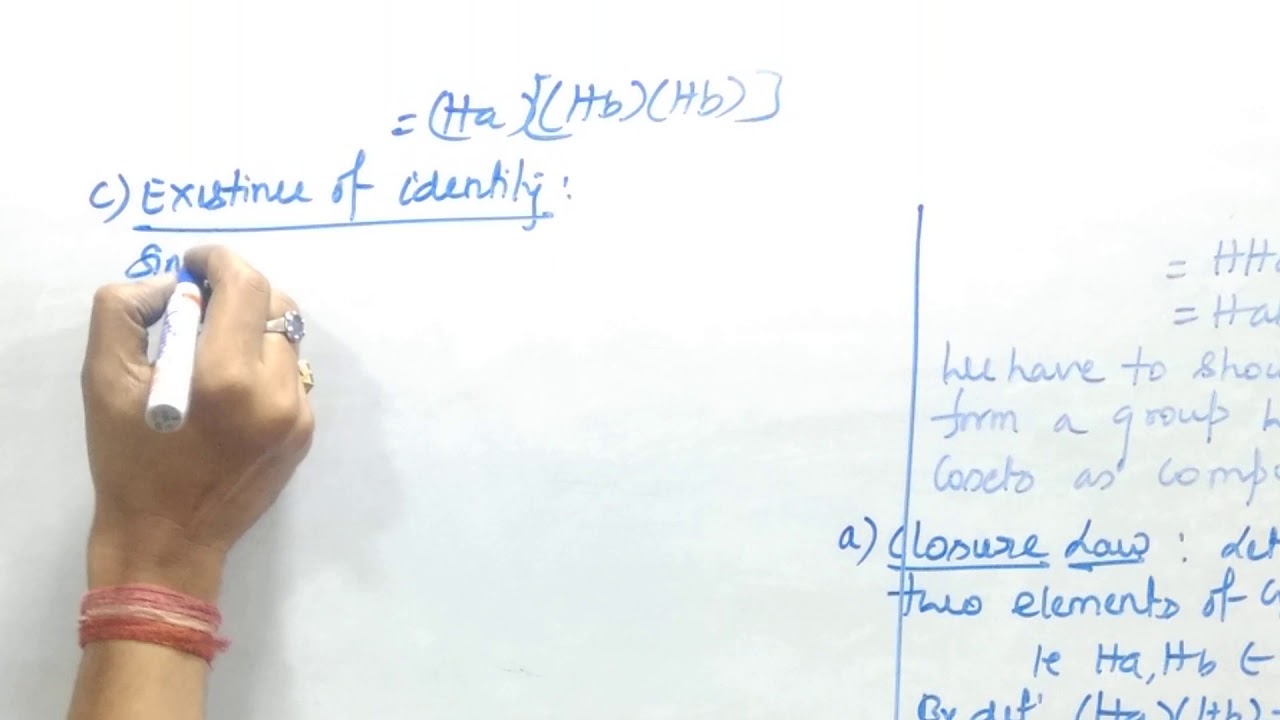 = (Ha)[(Hb)(Hb)]
c) Existince of identity :
Sin
= HHa
= Ha
we have to show
form a group
cosets as comp
a) Closure Law : Let
two elements of G
ie Ha, Hb ∈
By def. (Ha)(Hb) =